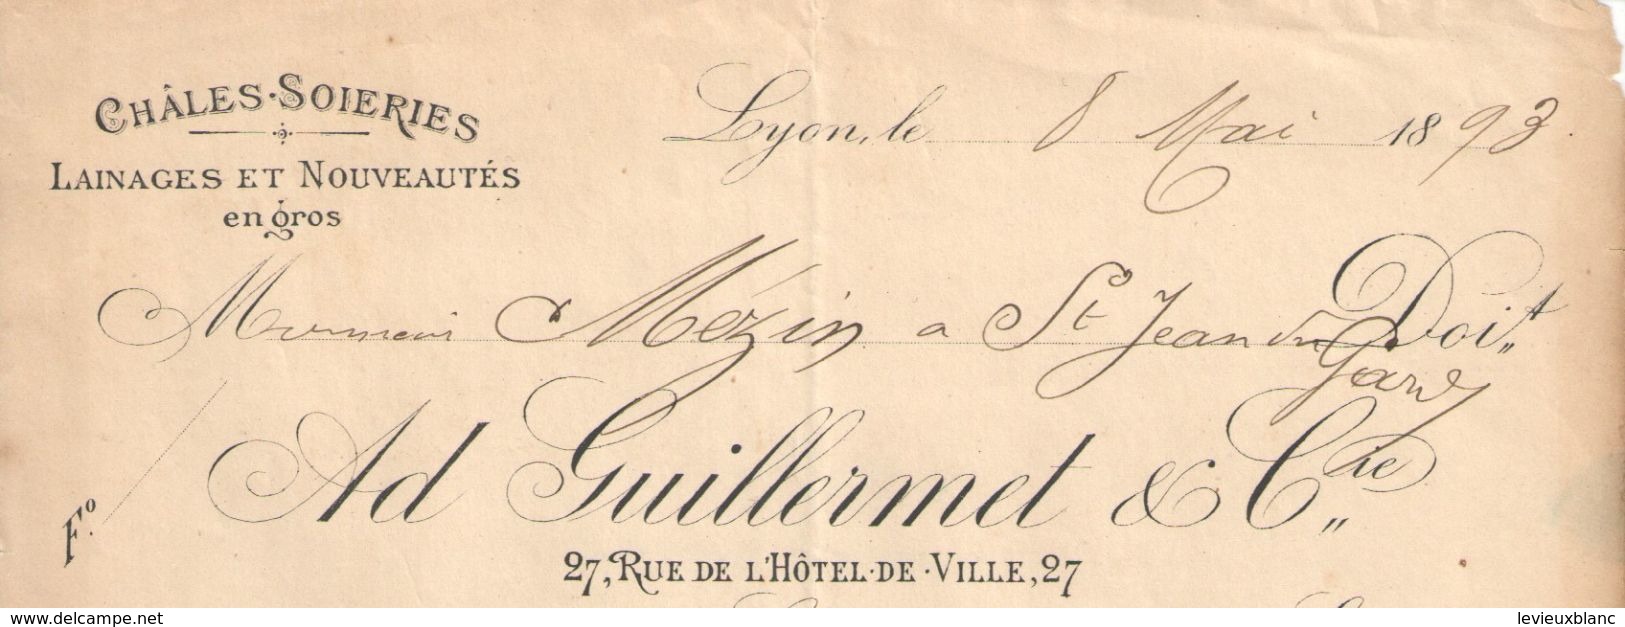 CHÂLES·SOIERIES
LAINAGES ET NOUVEAUTÉS
en gros
Lyon, le 8 Mai 1893.
Monsieur Mézin a St Jean du Gard Doit
Ad Guillermet & Cie
Fio
27, RUE DE L'HÔTEL·DE·VILLE, 27
www.delcampe.net
levieuxblanc